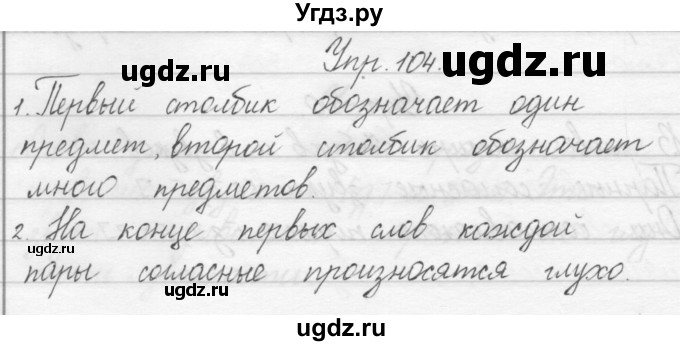 Угдз.ру
ugdz.ru
ugdz.ru
Упр. 104.
1. Первый столбик обозначает один
предмет, второй столбик обозначает
много предметов.
ugdz.ru
ugdz.ru
2 На конце первых слов каждой
ugdz.ru
пары согласные произносятся глухо.
ugdz.ru
ugdz.ru